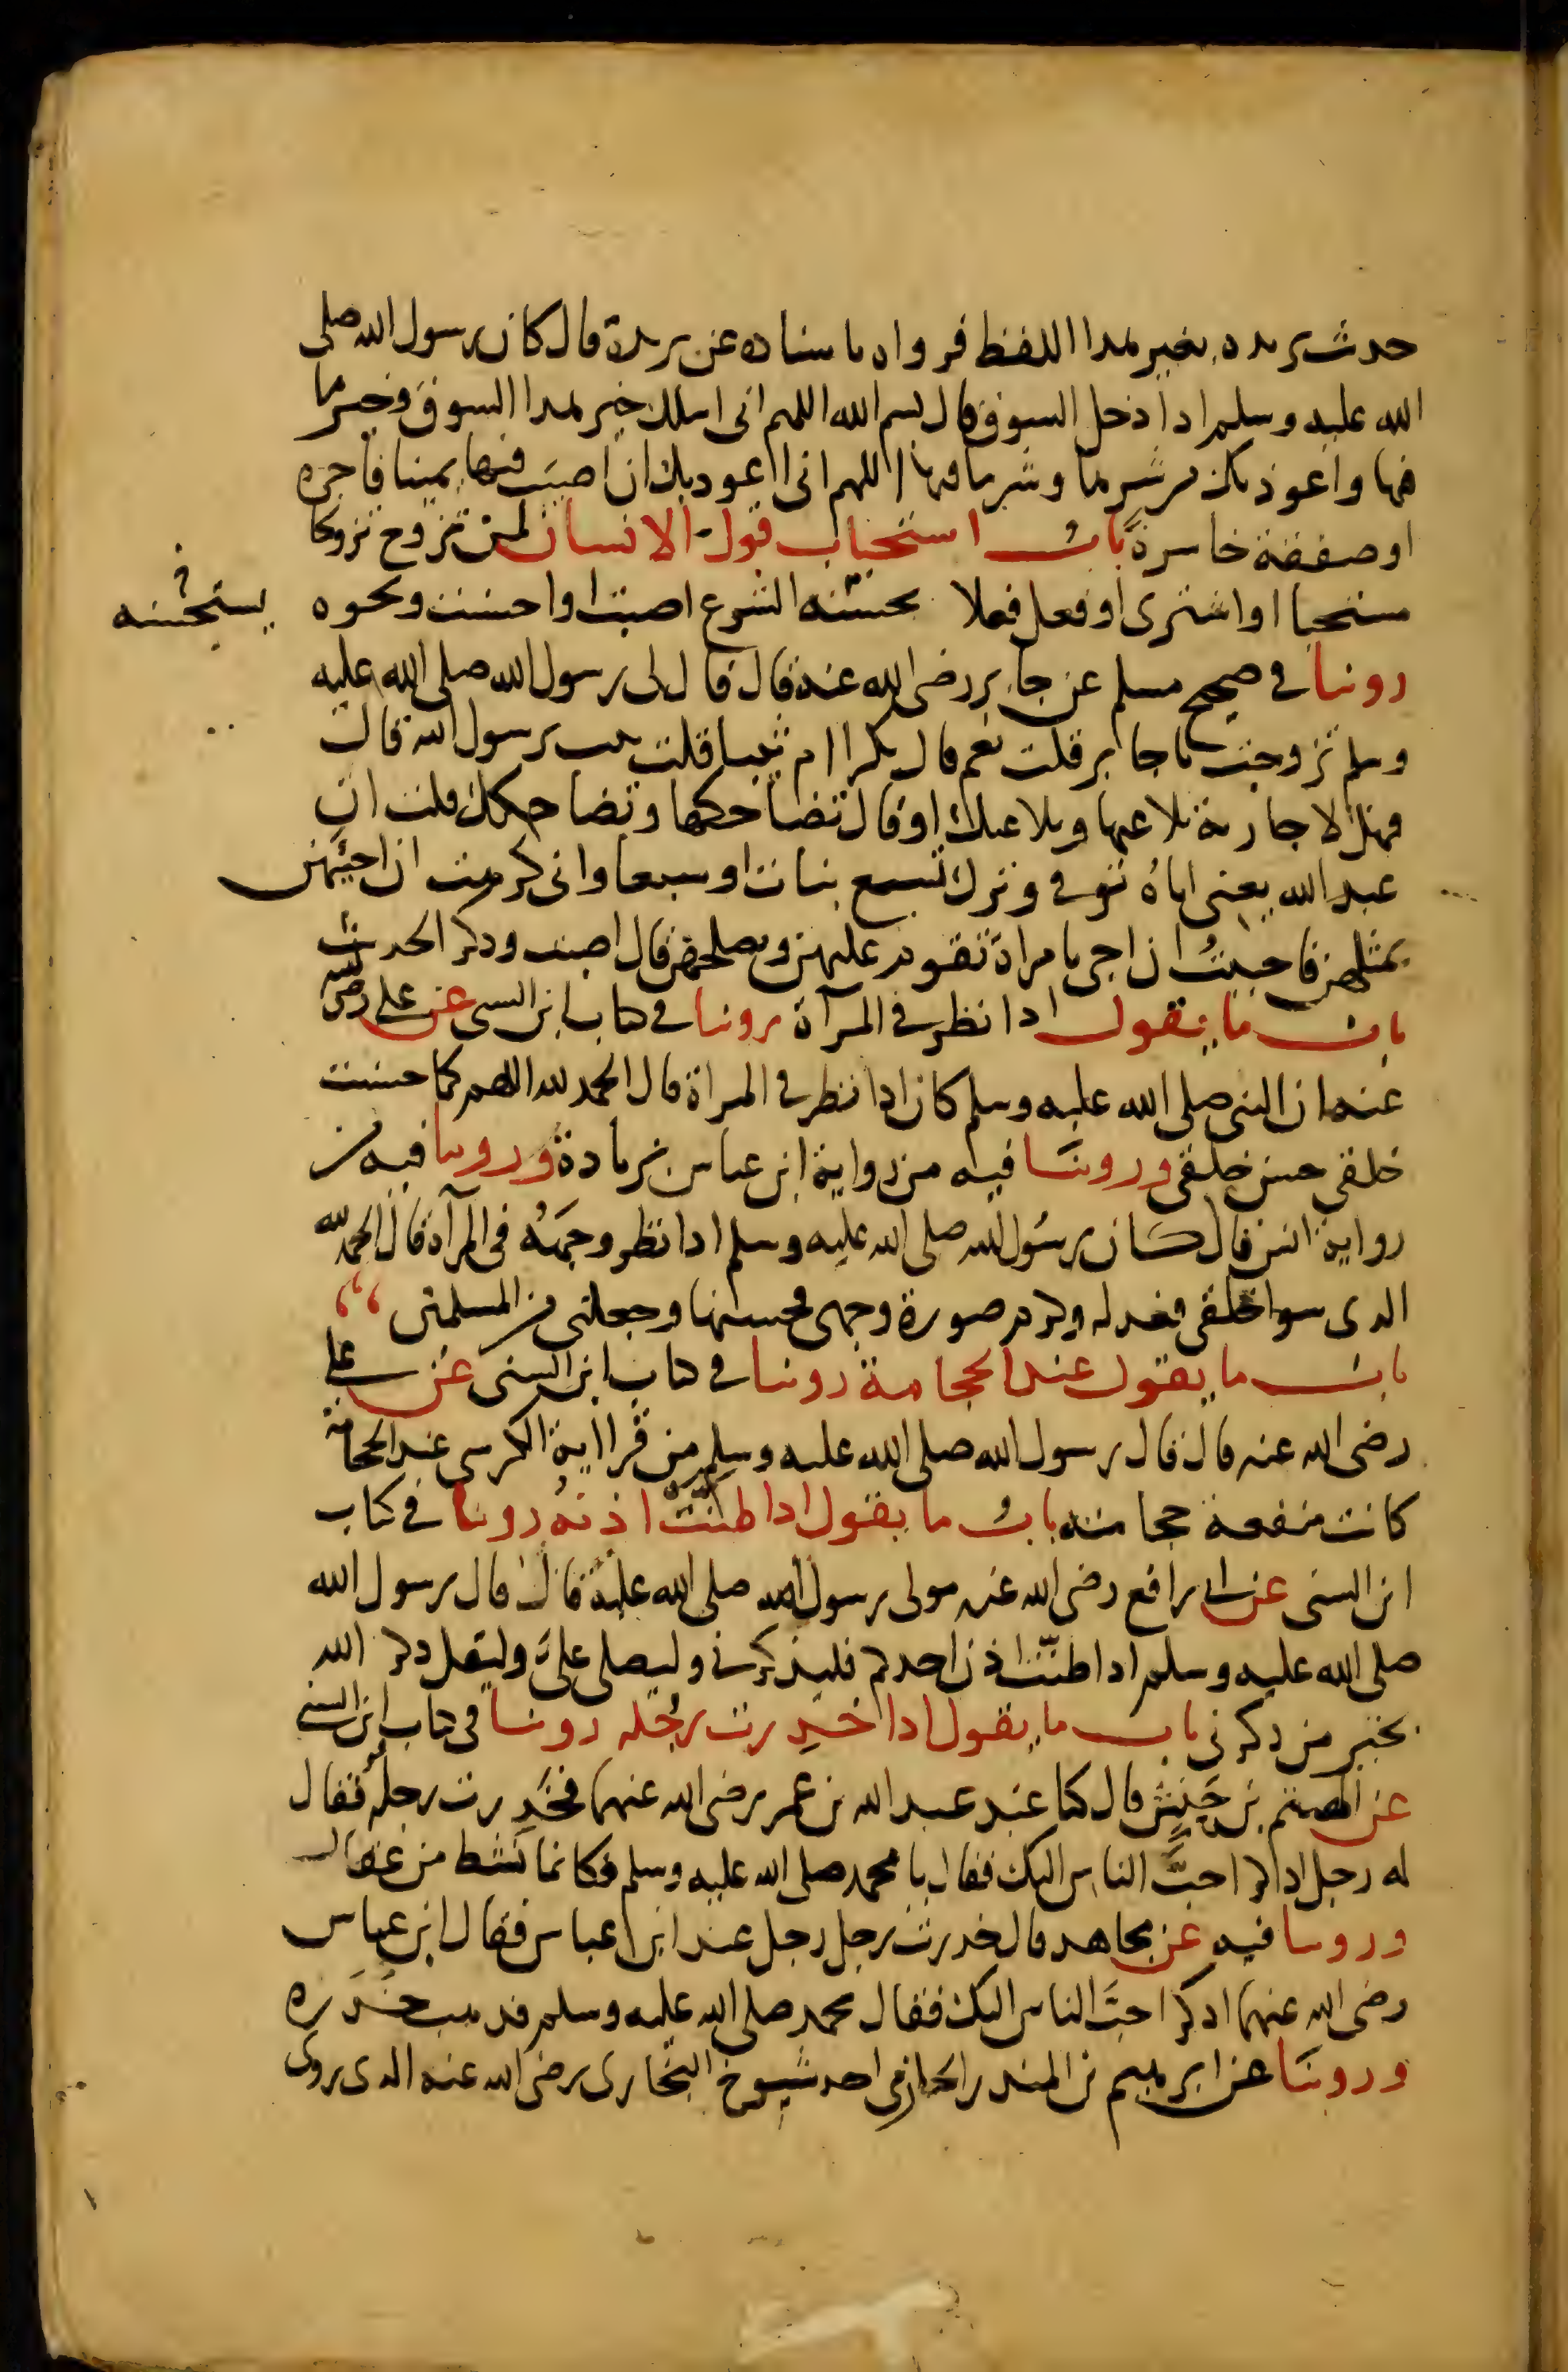 حديث بريدة بغير هذا اللفظ فرواه باسناده عن بريدة قال كان رسول الله صلى
الله عليه وسلم اذا دخل السوق قال بسم الله اللهم انى اسلك خير هذا السوق وخير ما
فيها واعوذ بك من شرها وشر ما فيها اللهم انى اعوذ بك ان اصيب فيها يمينا فاجرة
او صفقة خاسرة باب استحباب قول الانسان لمن تزوج تزوجا
مستحبا او اشترى او فعل فعلا يحسنه الشرع اصبت او احسنت ونحوه
يستحسنه
روينا في صحيح مسلم عن جابر رضى الله عنه قال قال لى رسول الله صلى الله عليه
وسلم تزوجت يا جابر قلت نعم قال بكرا ام ثيبا قلت ثيب يرسول الله قال
فهلا جارية تلاعبها وتلاعبك او قال تضاحكها وتضاحكك قلت ان
عبد الله يعنى اباه توفي وترك تسع بنات او سبعا وانى كرهت ان اجيهن
بمثلهن فاحببت ان اجى بامراة تقوم عليهن وتصلحهن قال اصبت وذكر الحديث
باب ما يقول اذا نظر في المرآة روينا في كتاب ابن السني عن على رضى الله
عنه ان النبى صلى الله عليه وسلم كان اذا نظر في المراة قال الحمد لله اللهم كما حسنت
خلقى حسن خلقى وروينا فيه من رواية ابن عباس بزيادة وروينا فيه من
رواية انس قال كان رسول الله صلى الله عليه وسلم اذا نظر وجهه في المرآة قال الحمد لله
الذى سوا خلقى فعدله وكرم صورة وجهى فحسنها وجعلنى من المسلمين
باب ما يقول عند الحجامة روينا في كتاب ابن السنى عن على
رضى الله عنه قال قال رسول الله صلى الله عليه وسلم من قرا اية الكرسى عند الحجامة
كانت منفعة حجامته باب ما يقول اذا طنت اذنه روينا في كتاب
ابن السنى عن ابي رافع رضى الله عنه مولى رسول الله صلى الله عليه قال قال رسول الله
صلى الله عليه وسلم اذا طنت اذن احدكم فليذكرني وليصلى علي وليقل ذكر الله
بخير من ذكرنى باب ما يقول اذا خدرت رجله روينا في كتاب ابن السني
عن الهيثم بن حنش قال كنا عند عبد الله بن عمر رضى الله عنهما فخدرت رجله فقال
له رجل اذكر احب الناس اليك فقال يا محمد صلى الله عليه وسلم فكانما نشط من عقال
وروينا فيه عن مجاهد قال خدرت رجل رجل عند ابن عباس فقال ابن عباس
رضى الله عنهما اذكر احب الناس اليك فقال محمد صلى الله عليه وسلم فذهب خدره
وروينا عن ابرهيم بن المنذر الحزامى احد شيوخ البخارى رضى الله عنه الذى روى